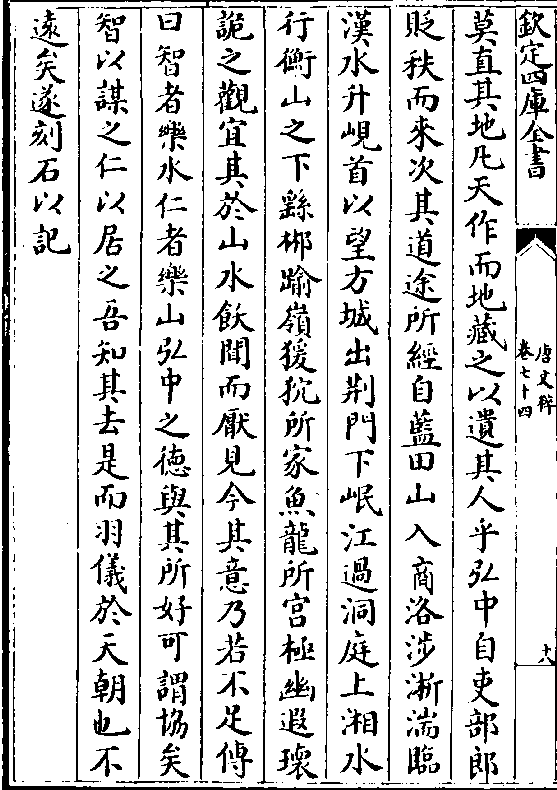 欽定四庫全書
唐文粹
卷七十四
十八
莫直其地凡天作而地藏之以遺其人乎弘中自吏部郎
貶秩而來次其道途所經自藍田山入商洛涉淅湍臨
漢水升峴首以望方城出荆門下岷江過洞庭上湘水
行衡山之下繇郴踰嶺猨狖所家魚龍所宫極幽遐瓌
詭之觀宜其於山水飫聞而厭見今其意乃若不足傳
曰智者樂水仁者樂山弘中之德與其所好可謂協矣
智以謀之仁以居之吾知其去是而羽儀於天朝也不
遠矣遂刻石以記